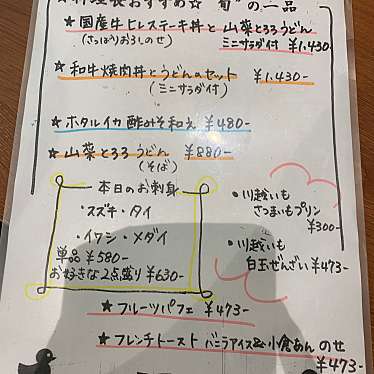 料理長おすすめ☆ 旬の一品
★国産牛ヒレステーキ丼と 山菜とろろうどん
(さっぽろおろしのせ) ミニサラダ付 ¥1.430-
★和牛焼肉丼とうどんのセット ¥1.430-
(ミニサラダ付)
★ホタルイカ酢みそ和え ¥480-
★山菜とろろうどん ¥880-
(そば)
本日のお刺身
・スズキ・タイ
・イワシ・メダイ
単品 ¥580-
お好きな2点盛り ¥630-
・川越いも
さつまいもプリン
¥300-
・川越いも
白玉ぜんざい ¥473-
★フルーツパフェ ¥473-
★フレンチトースト バニラアイス&小倉あんのせ
¥473-